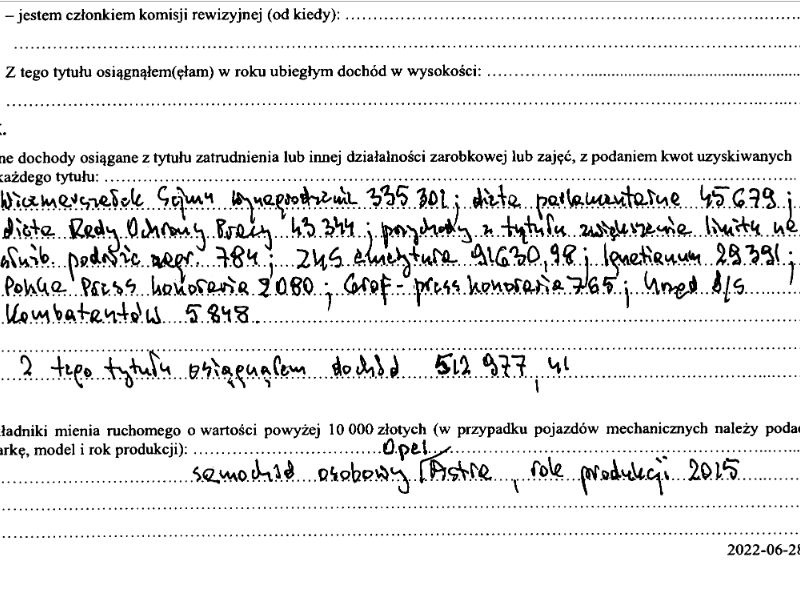 – jestem członkiem komisji rewizyjnej (od kiedy):
Z tego tytułu osiągnąłem(ęłam) w roku ubiegłym dochód w wysokości:
ne dochody osiągane z tytułu zatrudnienia lub innej działalności zarobkowej lub zajęć, z podaniem kwot uzyskiwanych
każdego tytułu:
Wicemarszałek Sejmu wynagrodzenie 335 301; dieta parlamentarna 45 679;
dieta Rady Ochrony Pracy 43 344; przychody z tytułu zwiększenia limitu na
służb. podróże zagr. 784; ZUS emerytura 91630,98; Ignatianum 29 391;
Polska Press honoraria 2 080; Graf-press honoraria 765; Urząd d/s
Kombatantów 5 848.
Z tego tytułu osiągnąłem dochód 512 977, 41
kładniki mienia ruchomego o wartości powyżej 10 000 złotych (w przypadku pojazdów mechanicznych należy podać
arkę, model i rok produkcji):
Opel
samochód osobowy Astra, rok produkcji 2015
2022-06-28